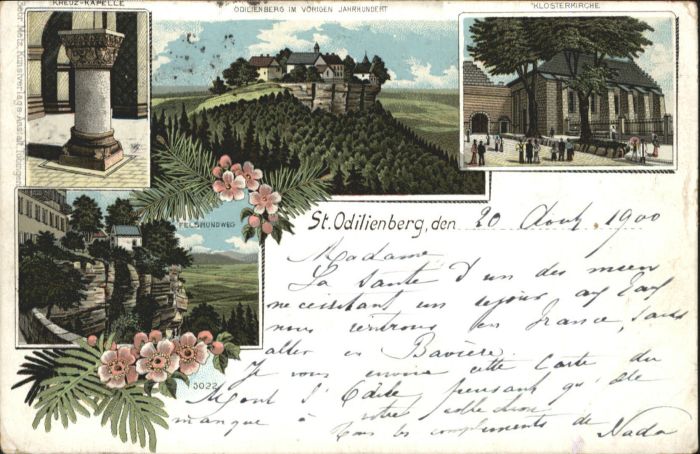 KREUZ-KAPELLE
ODILIENBERG IM VORIGEN JAHRHUNDERT
KLOSTERKIRCHE
Gebr. Metz, Kunstverlags-Anstalt, Tübingen
FELSRUNDWEG
5022
St. Odilienberg, den 20 Aout 1900
Madame
La santé d'un des miens
nécessitant un séjour
nous rentrons en France, sans
aller en Bavière
Je vous envoie cette Carte du
Mont S' Odile pensant qu'elle
manque à votre collection
Tous les compliments de Nada